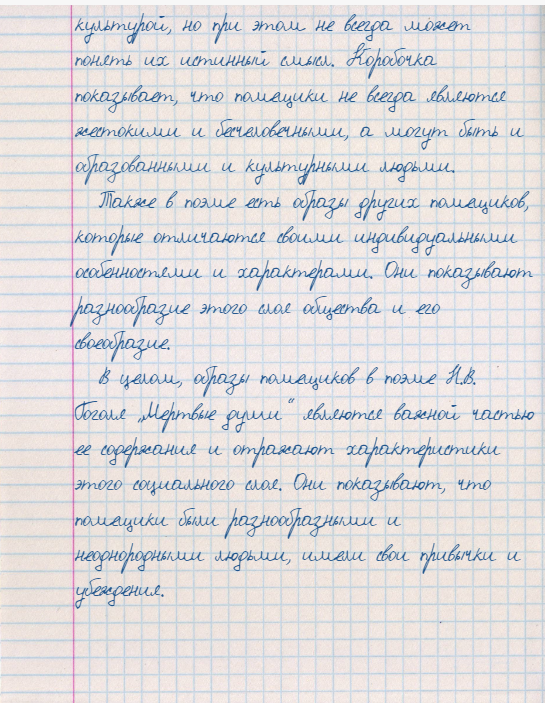 культурой, но при этом не всегда может
понять их истинный смысл. Коробочка
показывает, что помещики не всегда являются
жестокими и бесчеловечными, а могут быть и
образованными и культурными людьми.
Также в поэме есть образы других помещиков,
которые отличаются своими индивидуальными
особенностями и характерами. Они показывают
разнообразие этого слоя общества и его
своеобразие.
В целом, образы помещиков в поэме Н.В.
Гоголя „Мертвые души“ являются важной частью
ее содержания и отражают характеристики
этого социального слоя. Они показывают, что
помещики были разнообразными и
неоднородными людьми, имели свои привычки и
убеждения.